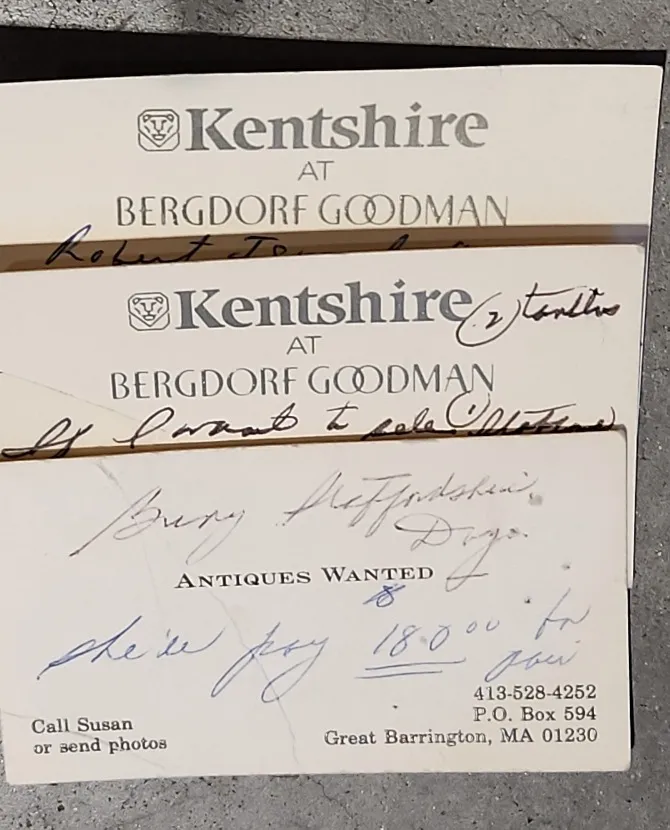 Kentshire
AT
BERGDORF GOODMAN
Robert
Kentshire
(2)
AT
BERGDORF GOODMAN
If I want to
Staffordshire
Dogs.
ANTIQUES WANTED
$
she'll pay 180.00 for
pair
413-528-4252
Call Susan
P.O. Box 594
or send photos
Great Barrington, MA 01230